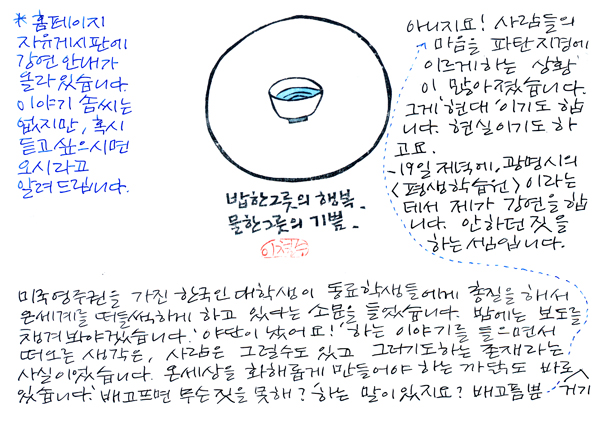 * 홈페이지
자유게시판에
강연 안내가
올라있습니다.
이야기 솜씨는
없지만, 혹시
듣고 싶으시면
오시라고
알려드립니다.
밥 한그릇의 행복.
물 한그릇의 기쁨.
이철수
미국영주권을 가진 한국인 대학생이 동료학생들에게 총질을 해서
온세계를 떠들썩하게 하고 있다는 소문을 들었습니다. 밤에는 보도를
챙겨봐야겠습니다. '야단이 났어요!' 하는 이야기를 들으면서
떠오른 생각은, 사람은 그럴수도 있고 그러기도하는 존재라는
사실이었습니다. 온세상을 화해롭게 만들어야 하는 까닭도 바로
있습니다. '배고프면 무슨짓을 못해?' 하는 말이 있지요? 배고픔뿐
거기
아니지요! 사람들의
마음을 파탄지경에
이르게하는 상황
이 많아졌습니다.
그게 '현대'이기도 합
니다. 현실이기도 하
고요.
-19일 저녁에, 광명시의
<평생학습원>이라는
데서 제가 강연을합
니다. 안하던 짓을
하는 셈입니다.